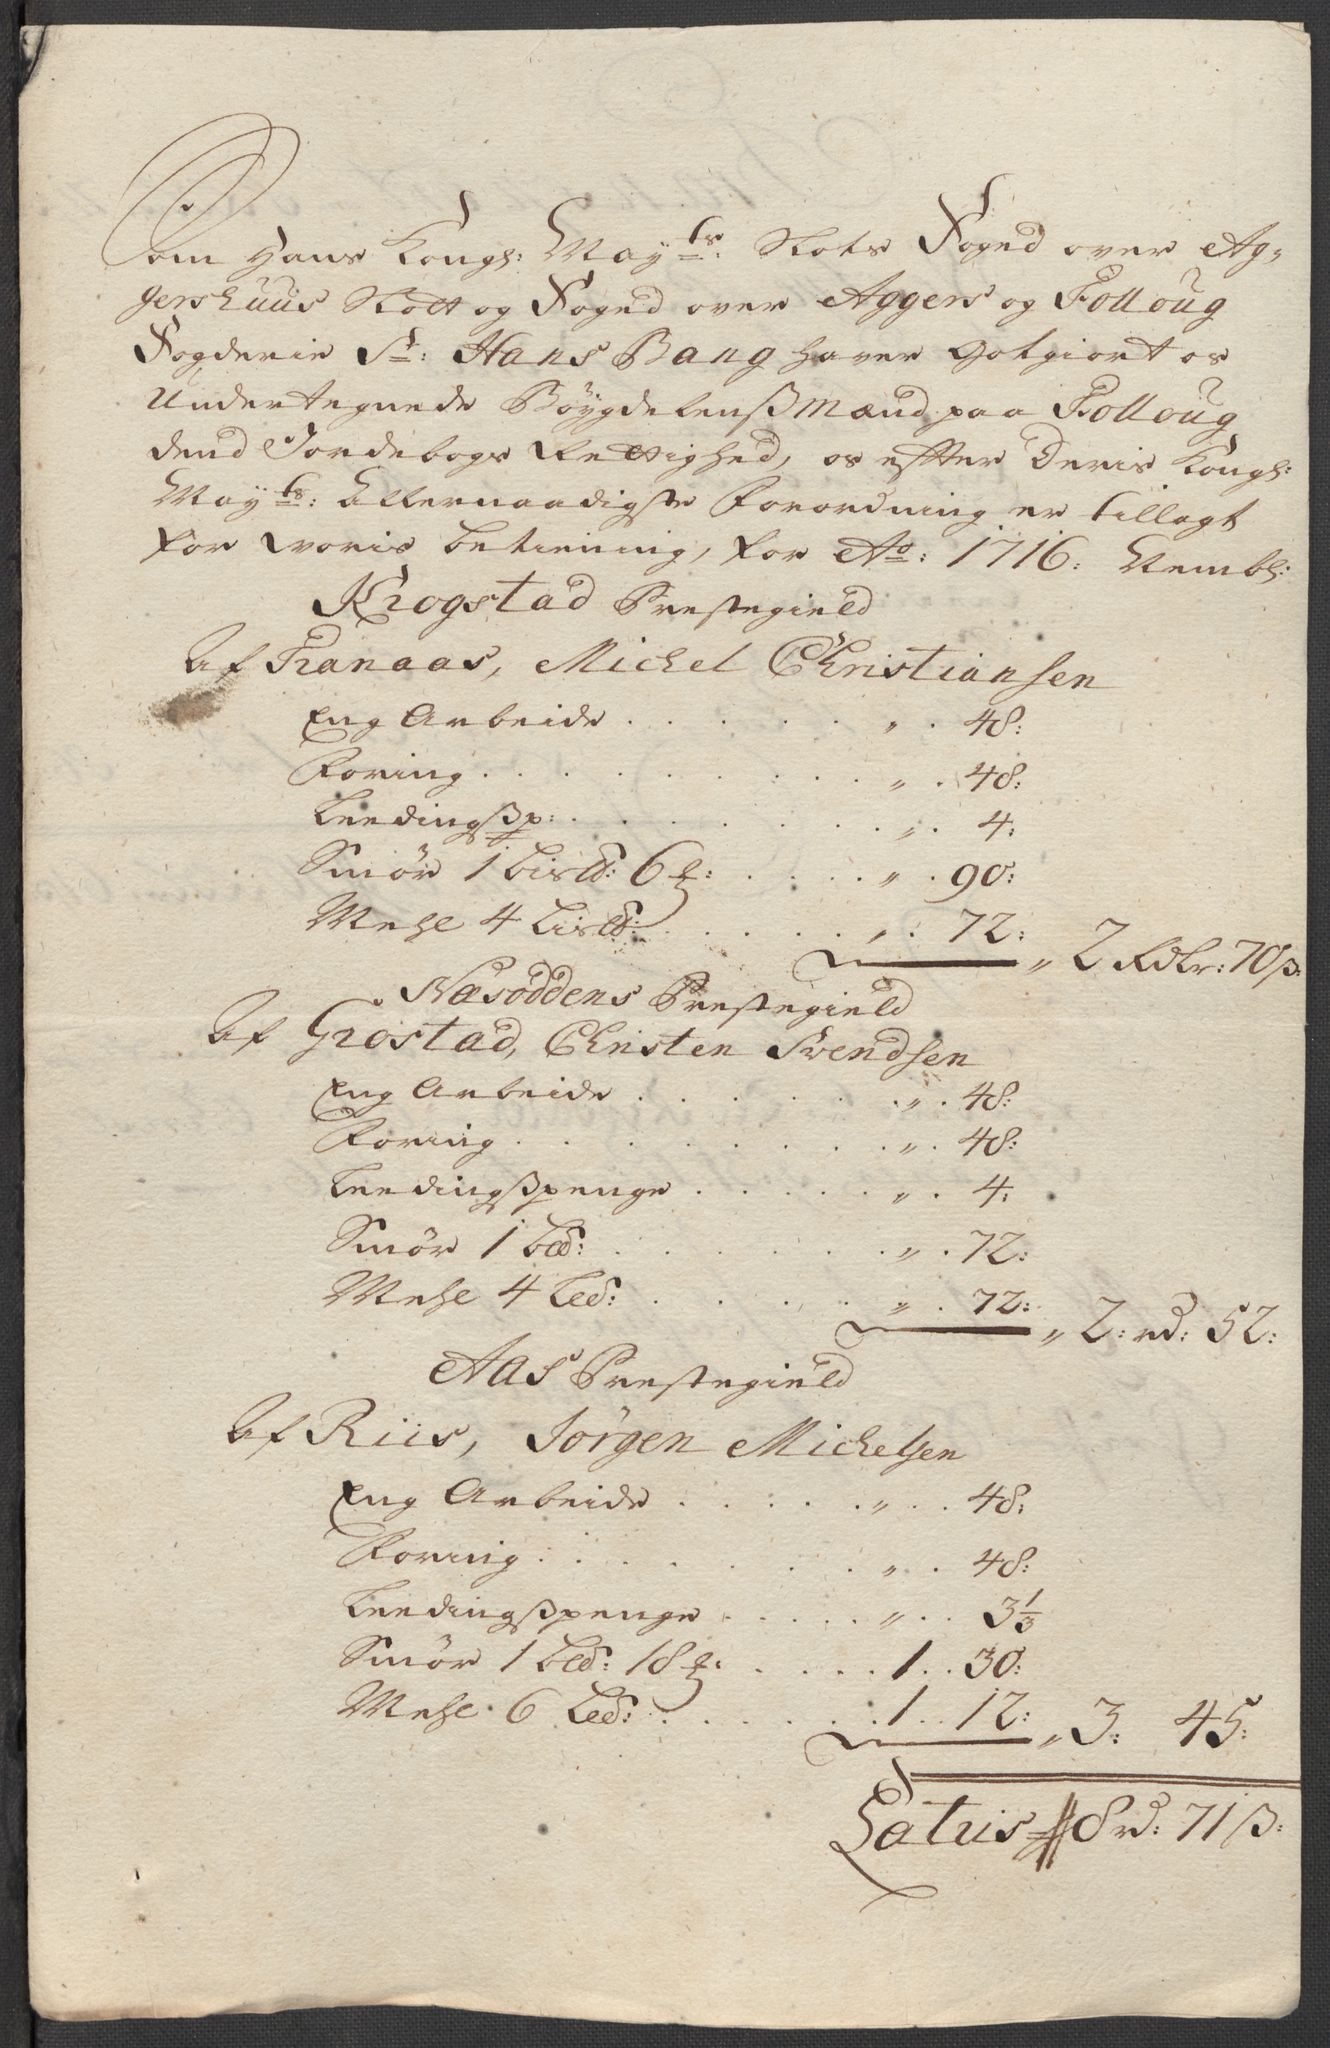 Som Hans Kongl: Mayts: Slots Foged over Ag-
gershuus Slott og Foged over Aggers og Folloug
Fogderie Sr: Hans Bang haver Gotgiort os
Undertegnede Böygdelensßmænd paa Folloug
dend Jordebogs Rettighed, os effter Deris Kongl:
Mayts: Allernaadigste Forordning er tillagt
for woris betienning, for Ao: 1716: Nembl:
Krogstad Prestegield
Af Tranaas, Michel Christiansen
Eng Arbeide . . . . . „ . 48:
Foring . . . . . . . „ . 48:
Leedingßp: . . . . . . „ . 4:
Smör 1 bis℔: 6 ℔: . . . . „ . 90:
Mehl 4 Lis℔: . . . . . „ . 72: „ 2 Rdlr: 70 ß:
Næsöddens Prestegield
Af Grostad, Christen Svendsen
Eng Arbeide . . . . . . „ . 48:
Foring . . . . . . . „ . 48:
Leedingßpenge . . . . . „ . 4:
Smör 1 b℔: . . . . . . „ . 72:
Mehl 4 L℔: . . . . . „ . 72: „ 2: rd: 52:
Aas Prestegield
Af Riis, Jörgen Michelsen
Eng Arbeide . . . . . „ . . 48:
Foring . . . . . . . „ . 48:
Leedingßpenge . . . . . „ . . 3 1/3
Smör 1 b℔: 18 ℔: . . . . 1 . . 30:
Mehl 6 L℔: . . . . . . 1 . . 12: „ 3: 45:
Latus 8 rd: 71 ß: